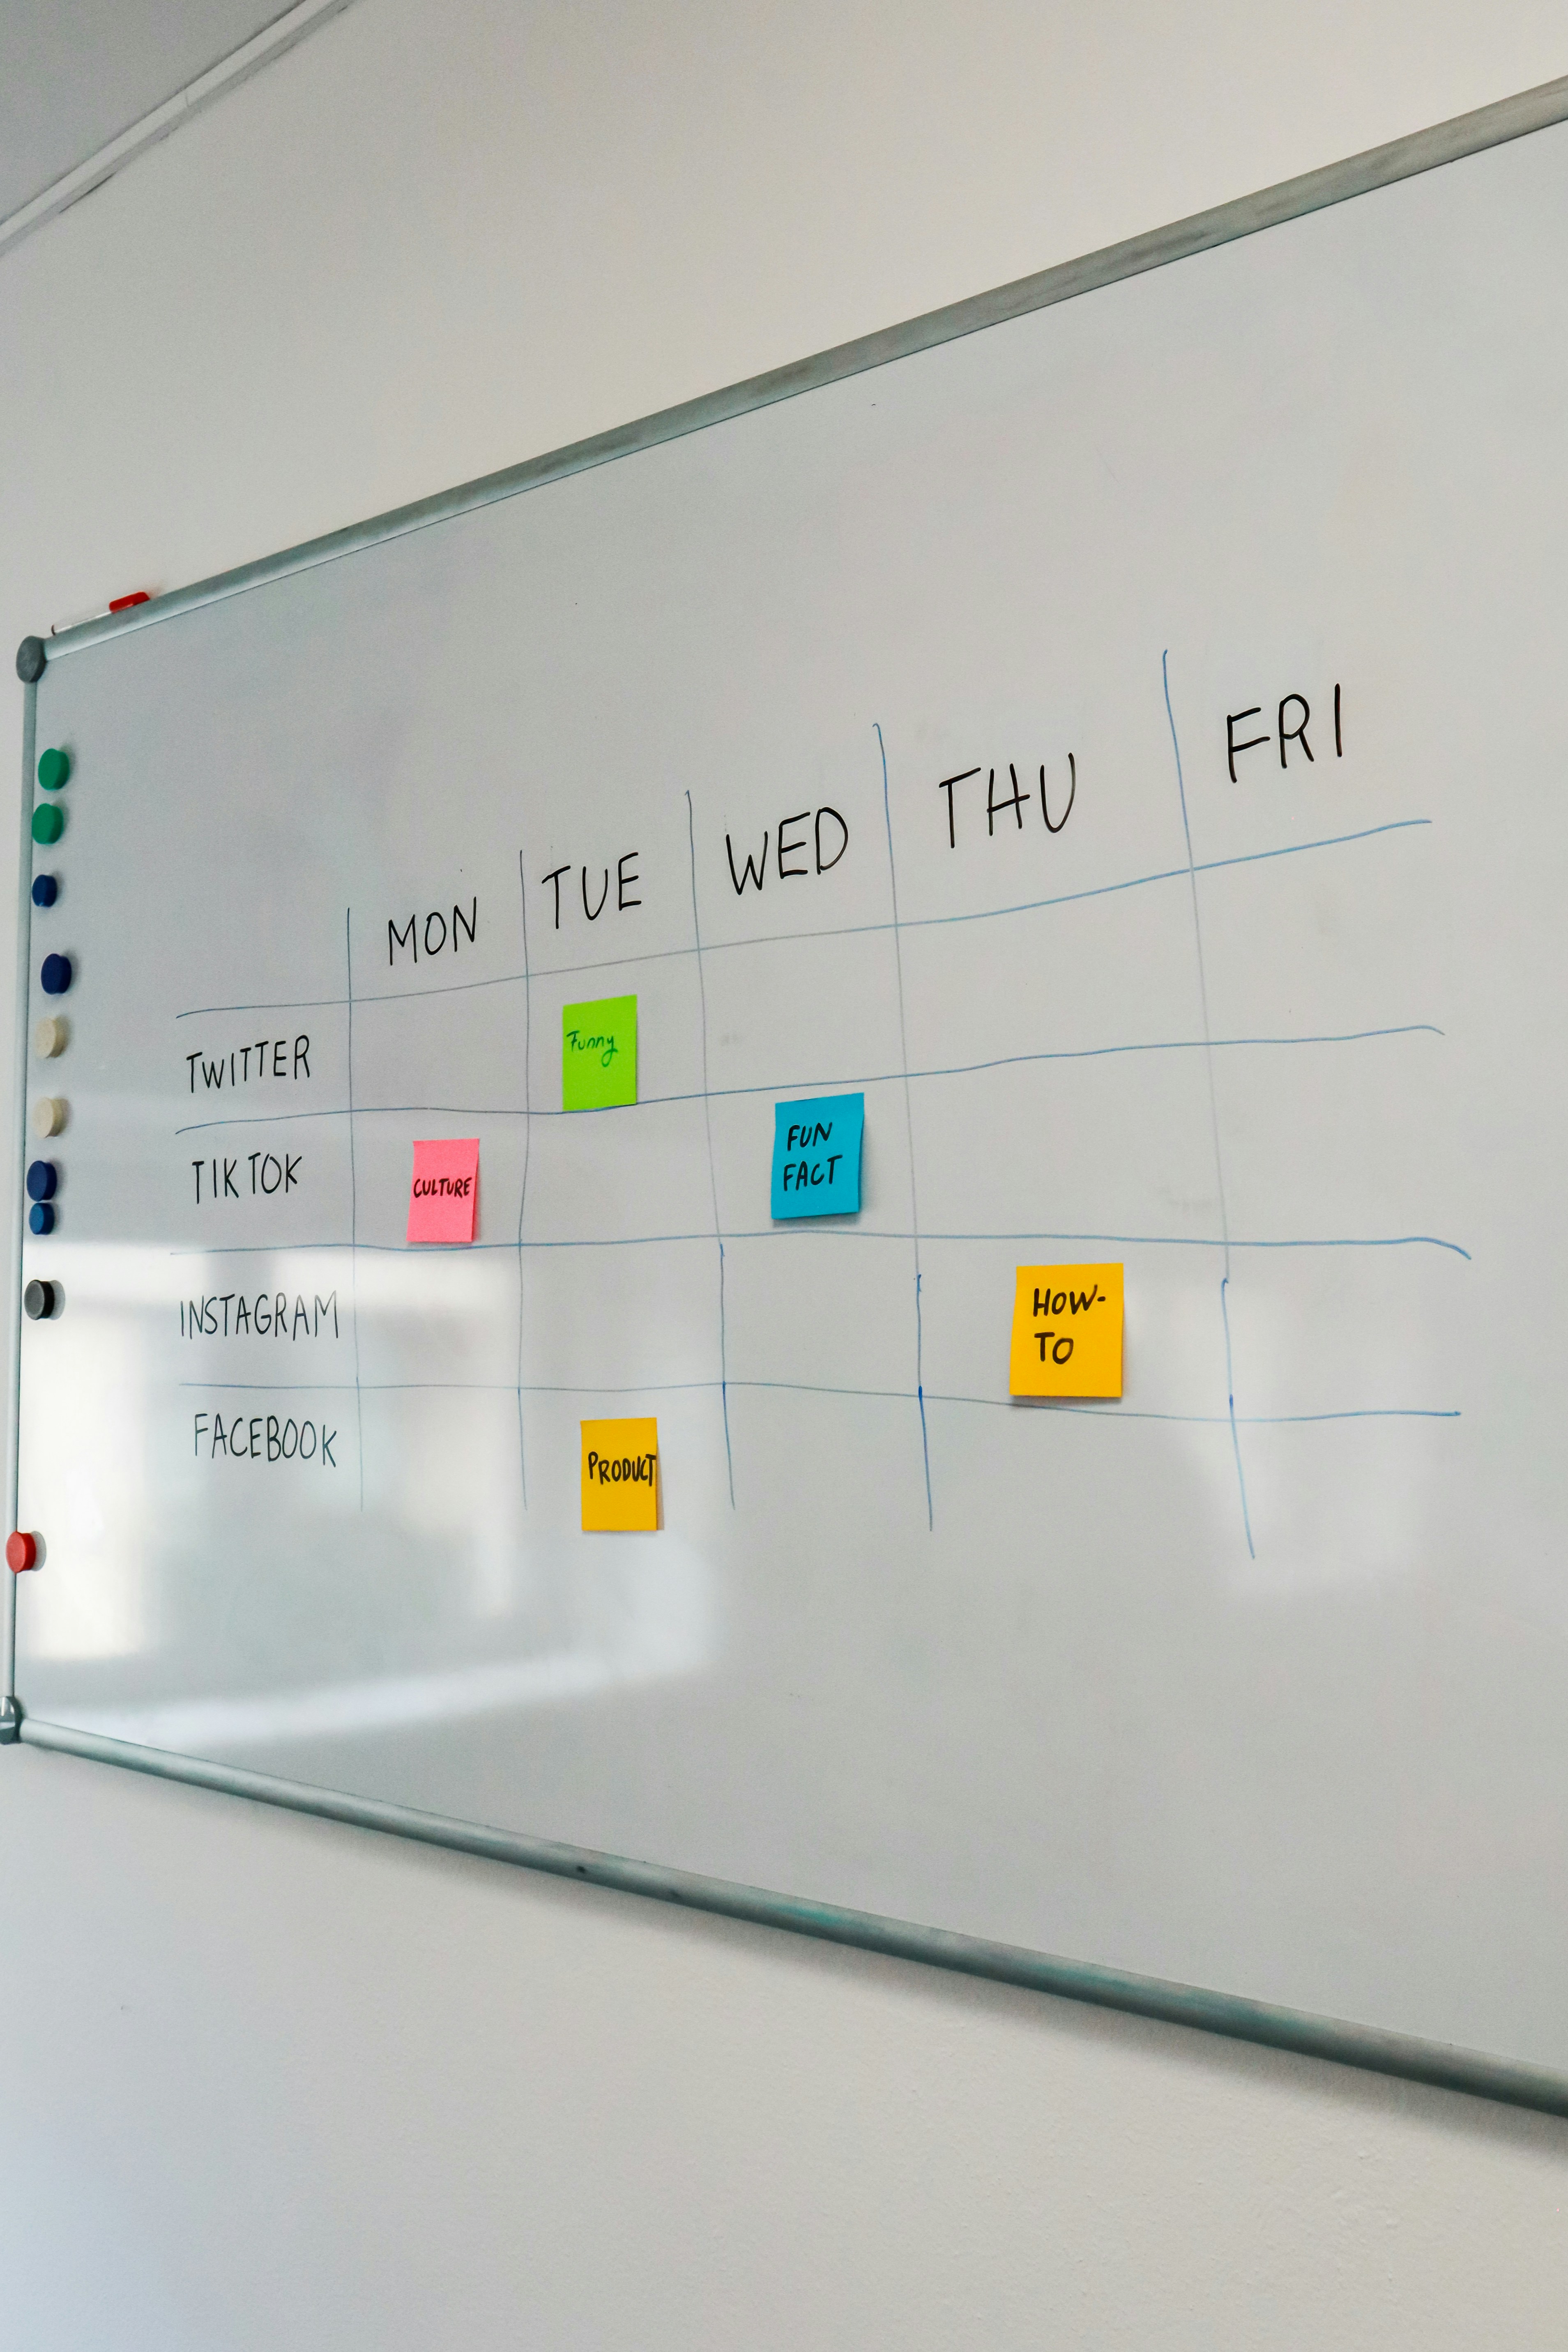 MON TUE WED THU FRI
TWITTER Funny
TIKTOK CULTURE FUN
FACT
INSTAGRAM HOW-
TO
FACEBOOK PRODUCT